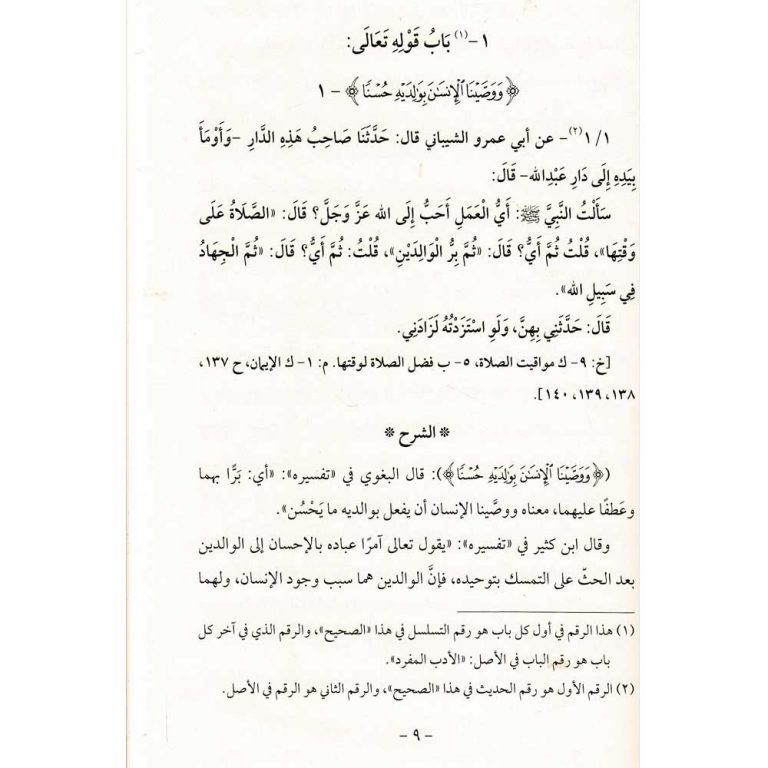 ١-(١) بَابُ قَوْلِهِ تَعَالَى:
﴿وَوَصَّيْنَا ٱلْإِنسَٰنَ بِوَٰلِدَيْهِ حُسْنًا﴾ - ١
١/١(٢)- عن أبي عمرو الشيباني قال: حَدَّثَنَا صَاحِبُ هَذِهِ الدَّارِ -وَأَوْمَأَ
بِيَدِهِ إِلَى دَارِ عَبْدِالله- قَالَ:
سَأَلْتُ النَّبِيَّ ﷺ: أَيُّ الْعَمَلِ أَحَبُّ إِلَى الله عَزَّ وَجَلَّ؟ قَالَ: «الصَّلَاةُ عَلَى
وَقْتِهَا»، قُلْتُ ثُمَّ أَيُّ؟ قَالَ: «ثُمَّ بِرُّ الْوَالِدَيْنِ»، قُلْتُ: ثُمَّ أَيُّ؟ قَالَ: «ثُمَّ الْجِهَادُ
فِي سَبِيلِ الله».
قَالَ: حَدَّثَنِي بِهِنَّ، وَلَوِ اسْتَزَدْتُهُ لَزَادَنِي.
[خ: ٩- ك مواقيت الصلاة، ٥- ب فضل الصلاة لوقتها. م: ١- ك الإيمان، ح ١٣٧،
١٣٨، ١٣٩، ١٤٠].
* الشرح *
(﴿وَوَصَّيْنَا ٱلْإِنسَٰنَ بِوَٰلِدَيْهِ حُسْنًا﴾): قال البغوي في «تفسيره»: «أي: بَرًّا بهما
وعَطفًا عليهما، معناه ووصَّينا الإنسان أن يفعل بوالديه ما يَحْسُن».
وقال ابن كثير في «تفسيره»: «يقول تعالى آمرًا عباده بالإحسان إلى الوالدين
بعد الحثّ على التمسك بتوحيده، فإنَّ الوالدين هما سبب وجود الإنسان، ولهما
(١) هذا الرقم في أول كل باب هو رقم التسلسل في هذا «الصحيح»، والرقم الذي في آخر كل
باب هو رقم الباب في الأصل: «الأدب المفرد».
(٢) الرقم الأول هو رقم الحديث في هذا «الصحيح»، والرقم الثاني هو الرقم في الأصل.
- ٩ -